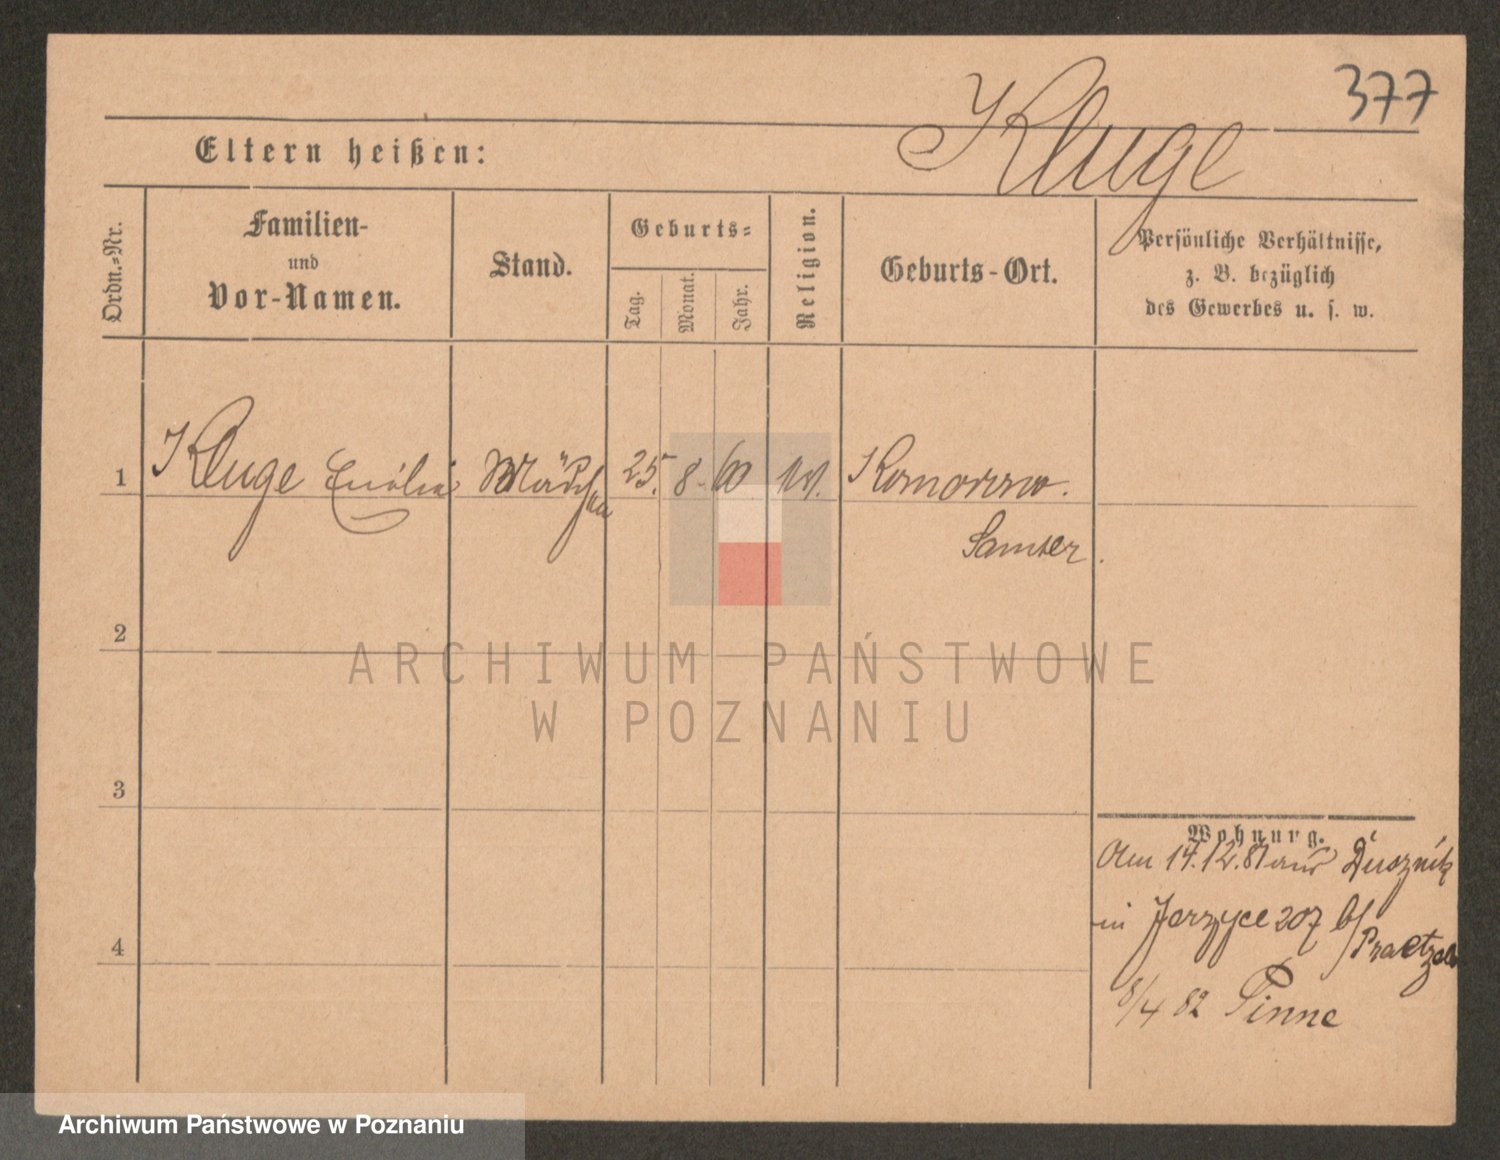 377
Kluge
Eltern heißen:
Ordn.=Nr.
Familien-
und
Vor-Namen.
Stand.
Geburts=
Tag.
Monat.
Jahr.
Religion.
Geburts-Ort.
Persönliche Verhältnisse,
z. B. bezüglich
des Gewerbes u. s. w.
1 Kluge Emilie Mädchen 25. 8. 60 Komorowo.
Samter.
2
ARCHIWUM PAŃSTWOWE
W POZNANIU
3
Wohnung.
Am 14.12.81 aus Dusznik
in Jerzyce 207 b/
Praetzel
4
8/4 82 Pinne
Archiwum Państwowe w Poznaniu